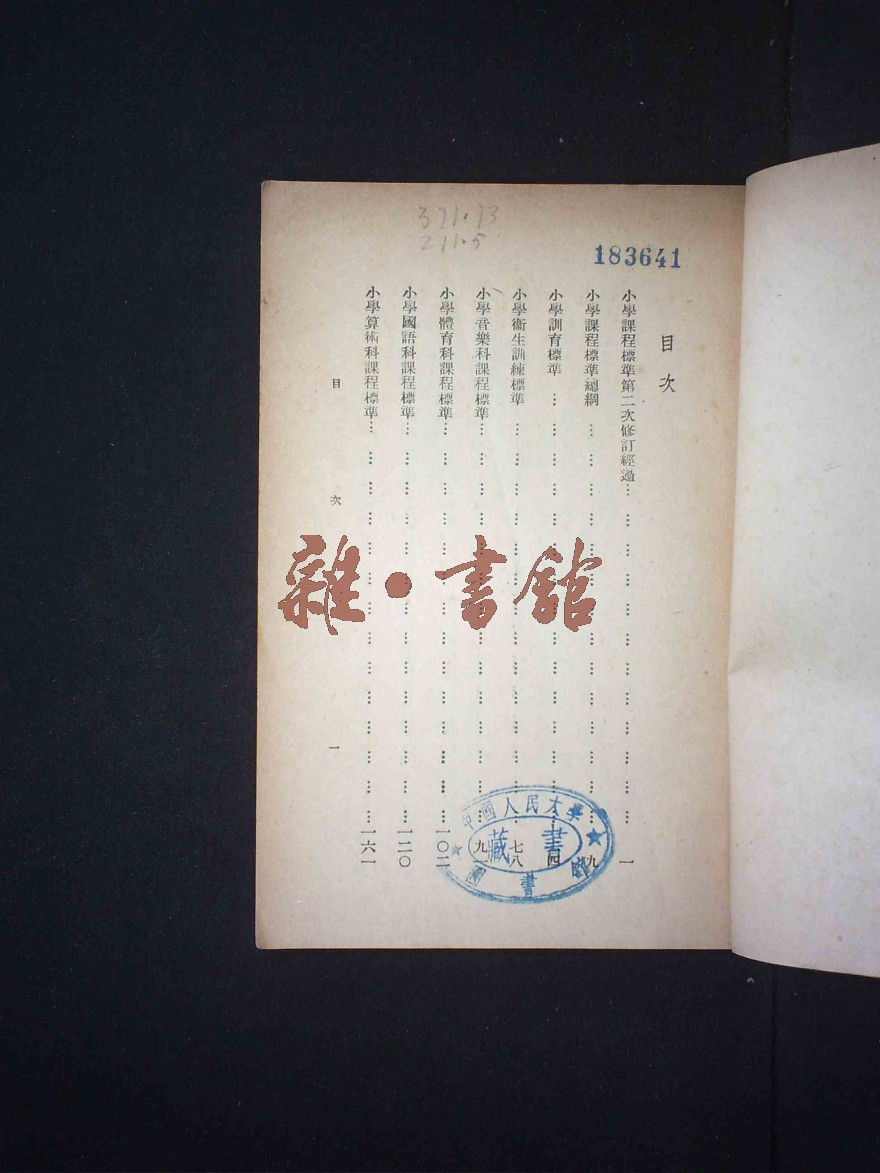 371.73
211.5
183641
目次
小學課程標準第二次修訂經過……一
小學課程標準總綱……九
小學訓育標準……四
小學衞生訓練標準……七八
小學音樂科課程標準……九一
小學體育科課程標準……一〇二
小學國語科課程標準……一二〇
小學算術科課程標準……一六一
目次 一
雜·書館
中國人民大學
藏書
圖書館